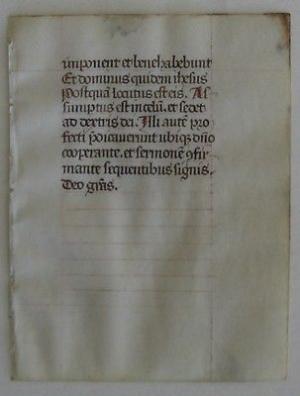 imponent et bene habebunt
Et dominus quidem ihesus
Postquā locutus est eis. As-
sumptus est in celū. et sedet
ad dextris dei. Illi autē pro
fecti p̄dicauerunt ubiqꝫ dn̄o
cooperante. et sermonē ꝯfir
mante sequentibus signis.
Deo grās.